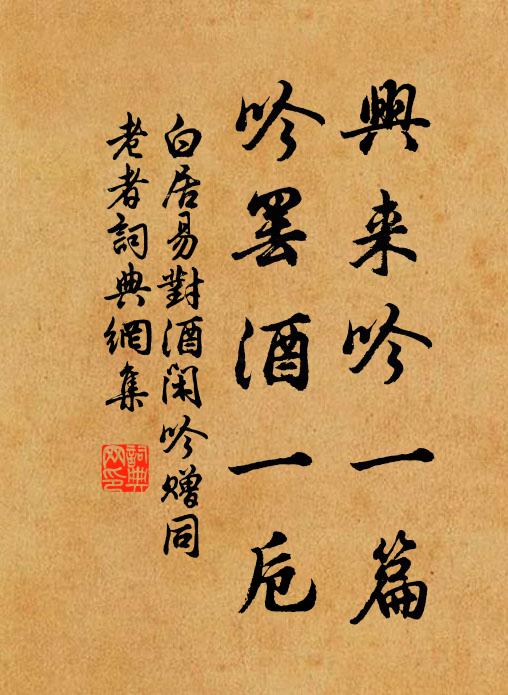 興来吟一篇
吟罷酒一卮
白居易對酒閑吟贈同
老者詞典網集
詞典网印